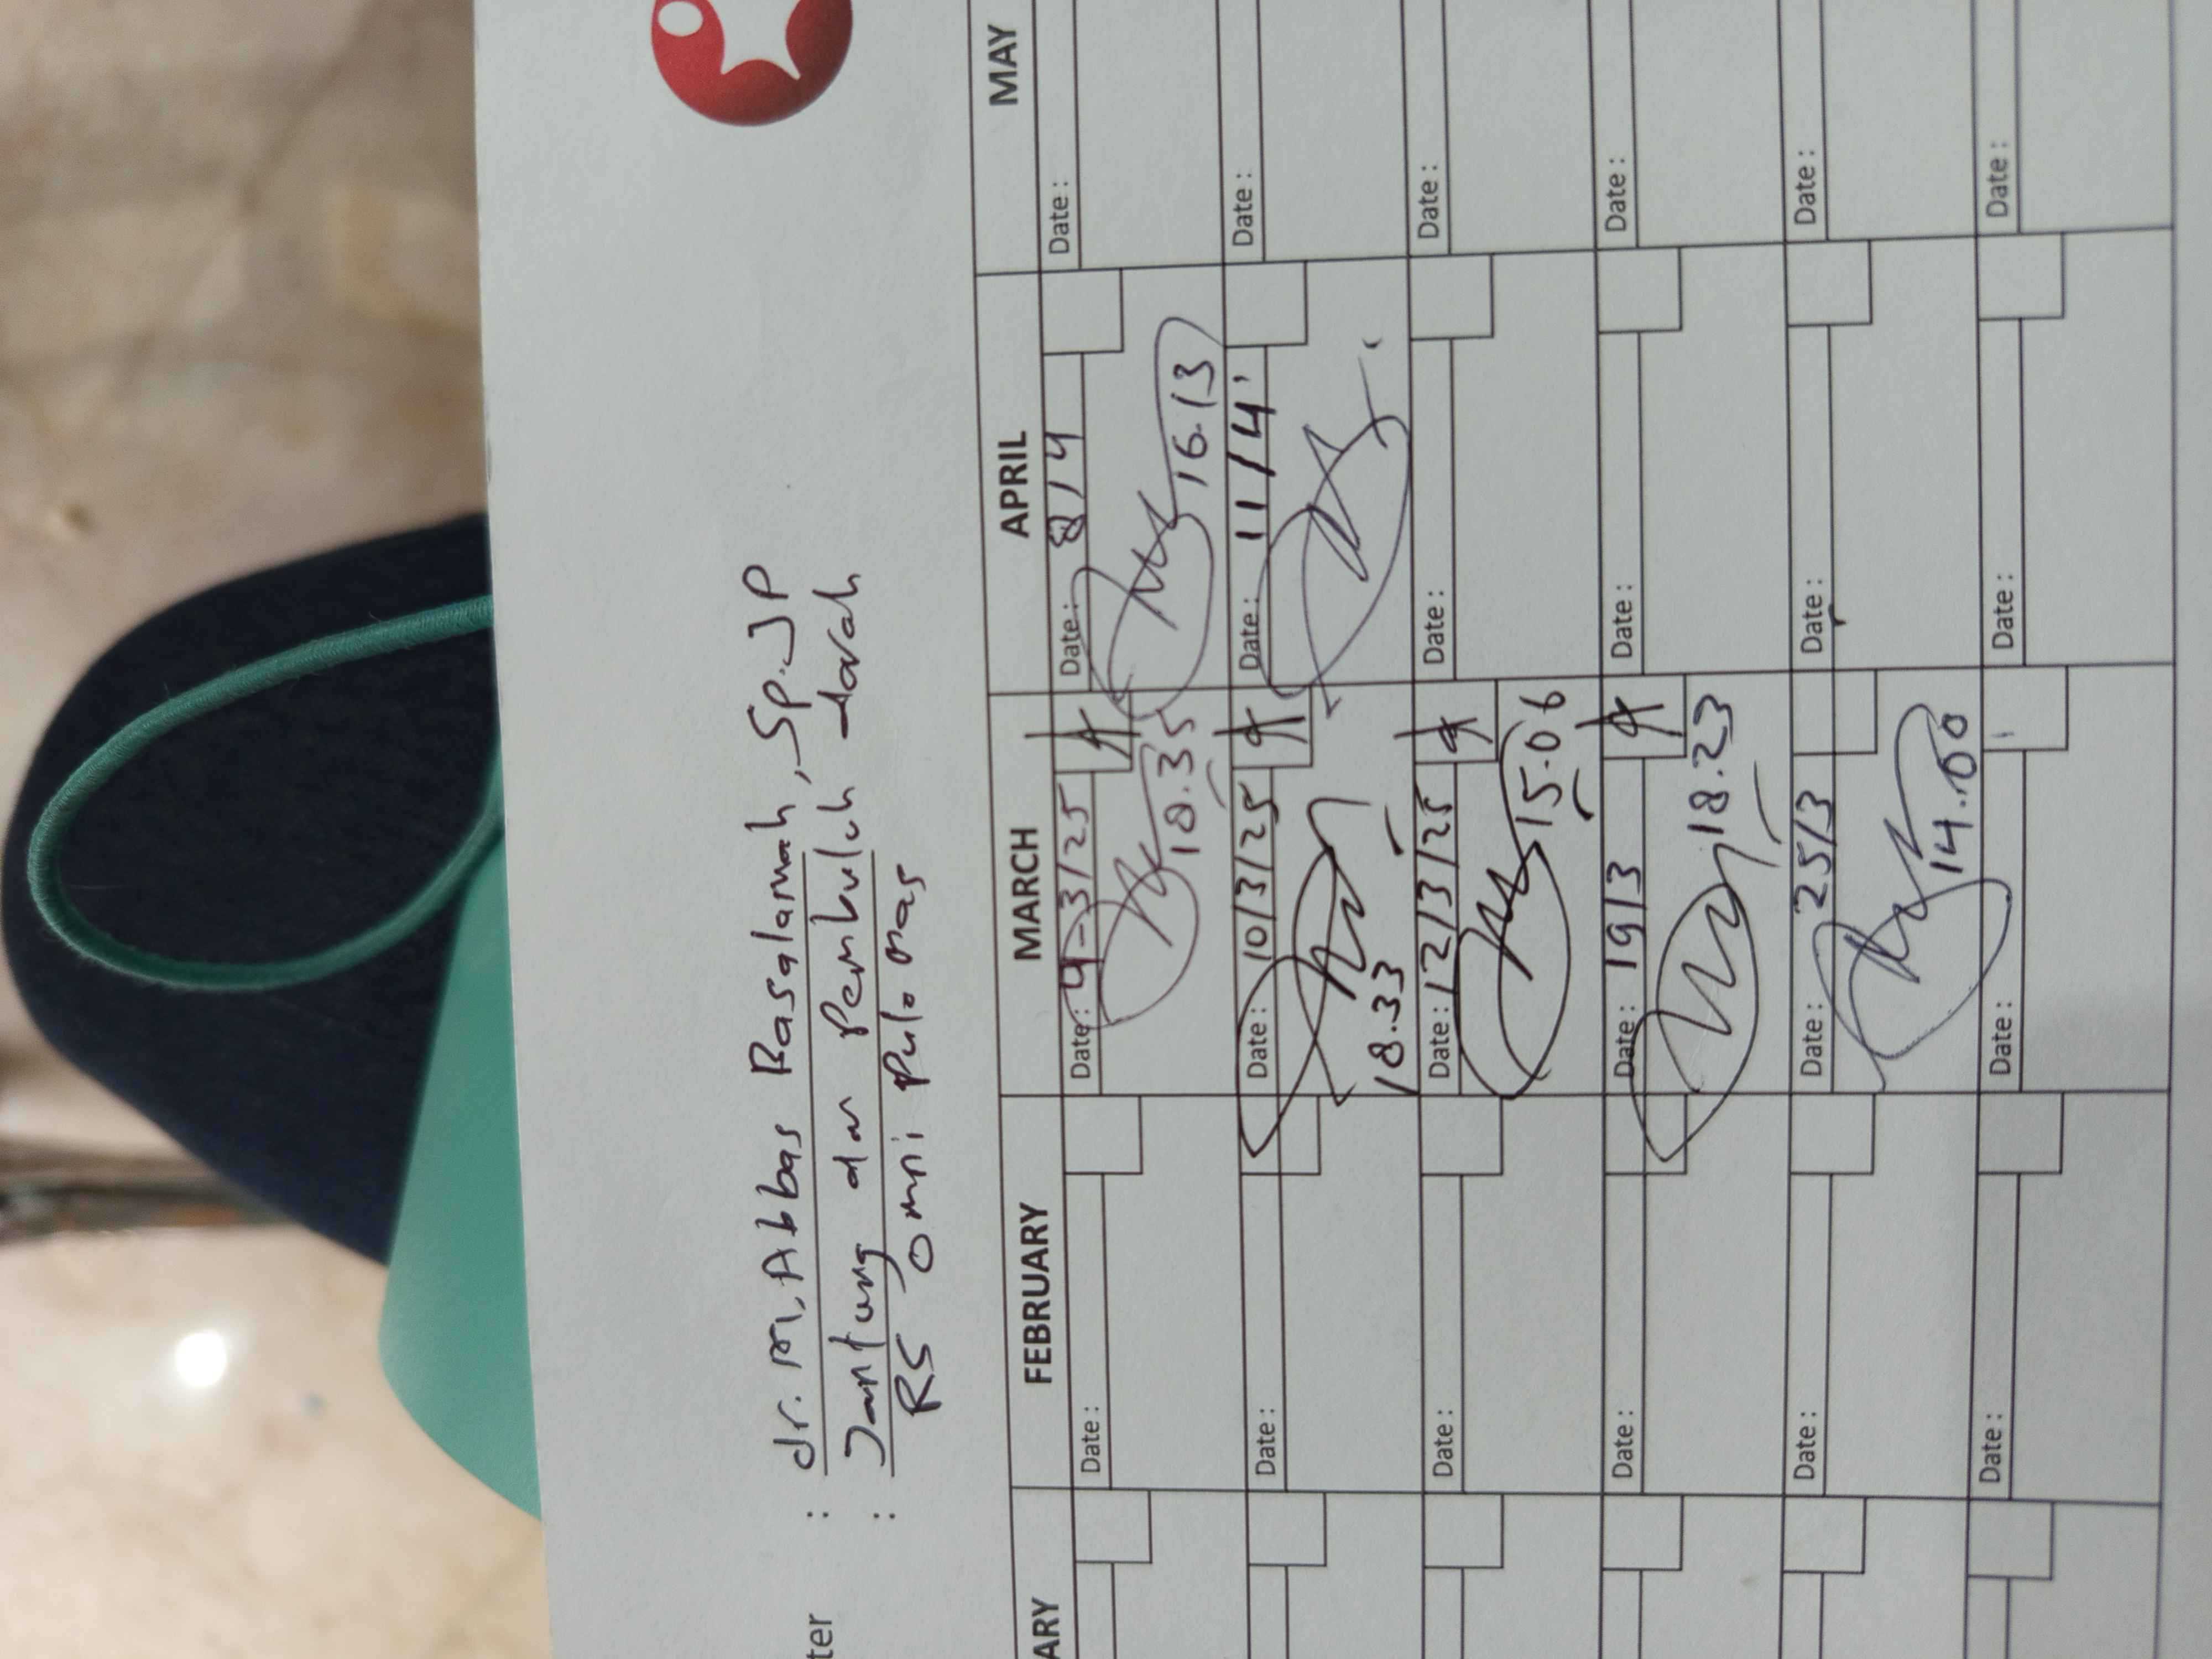 ter : dr. M. Abbas Basalamah, Sp.JP
: Jantung dan Pembuluh darah
RS Omni Pulomas
ARY FEBRUARY MARCH APRIL MAY
Date : Date : 4-3/25 Date : 8/4 Date :
18.35 16.13
Date : Date : 10/3/25 Date : 11/4 Date :
18.33
Date : Date : 12/3/25 Date : Date :
15.06
Date : Date : 19/3 Date : Date :
18.23
Date : Date : 25/3 Date : Date :
14.00
Date : Date : Date : Date :